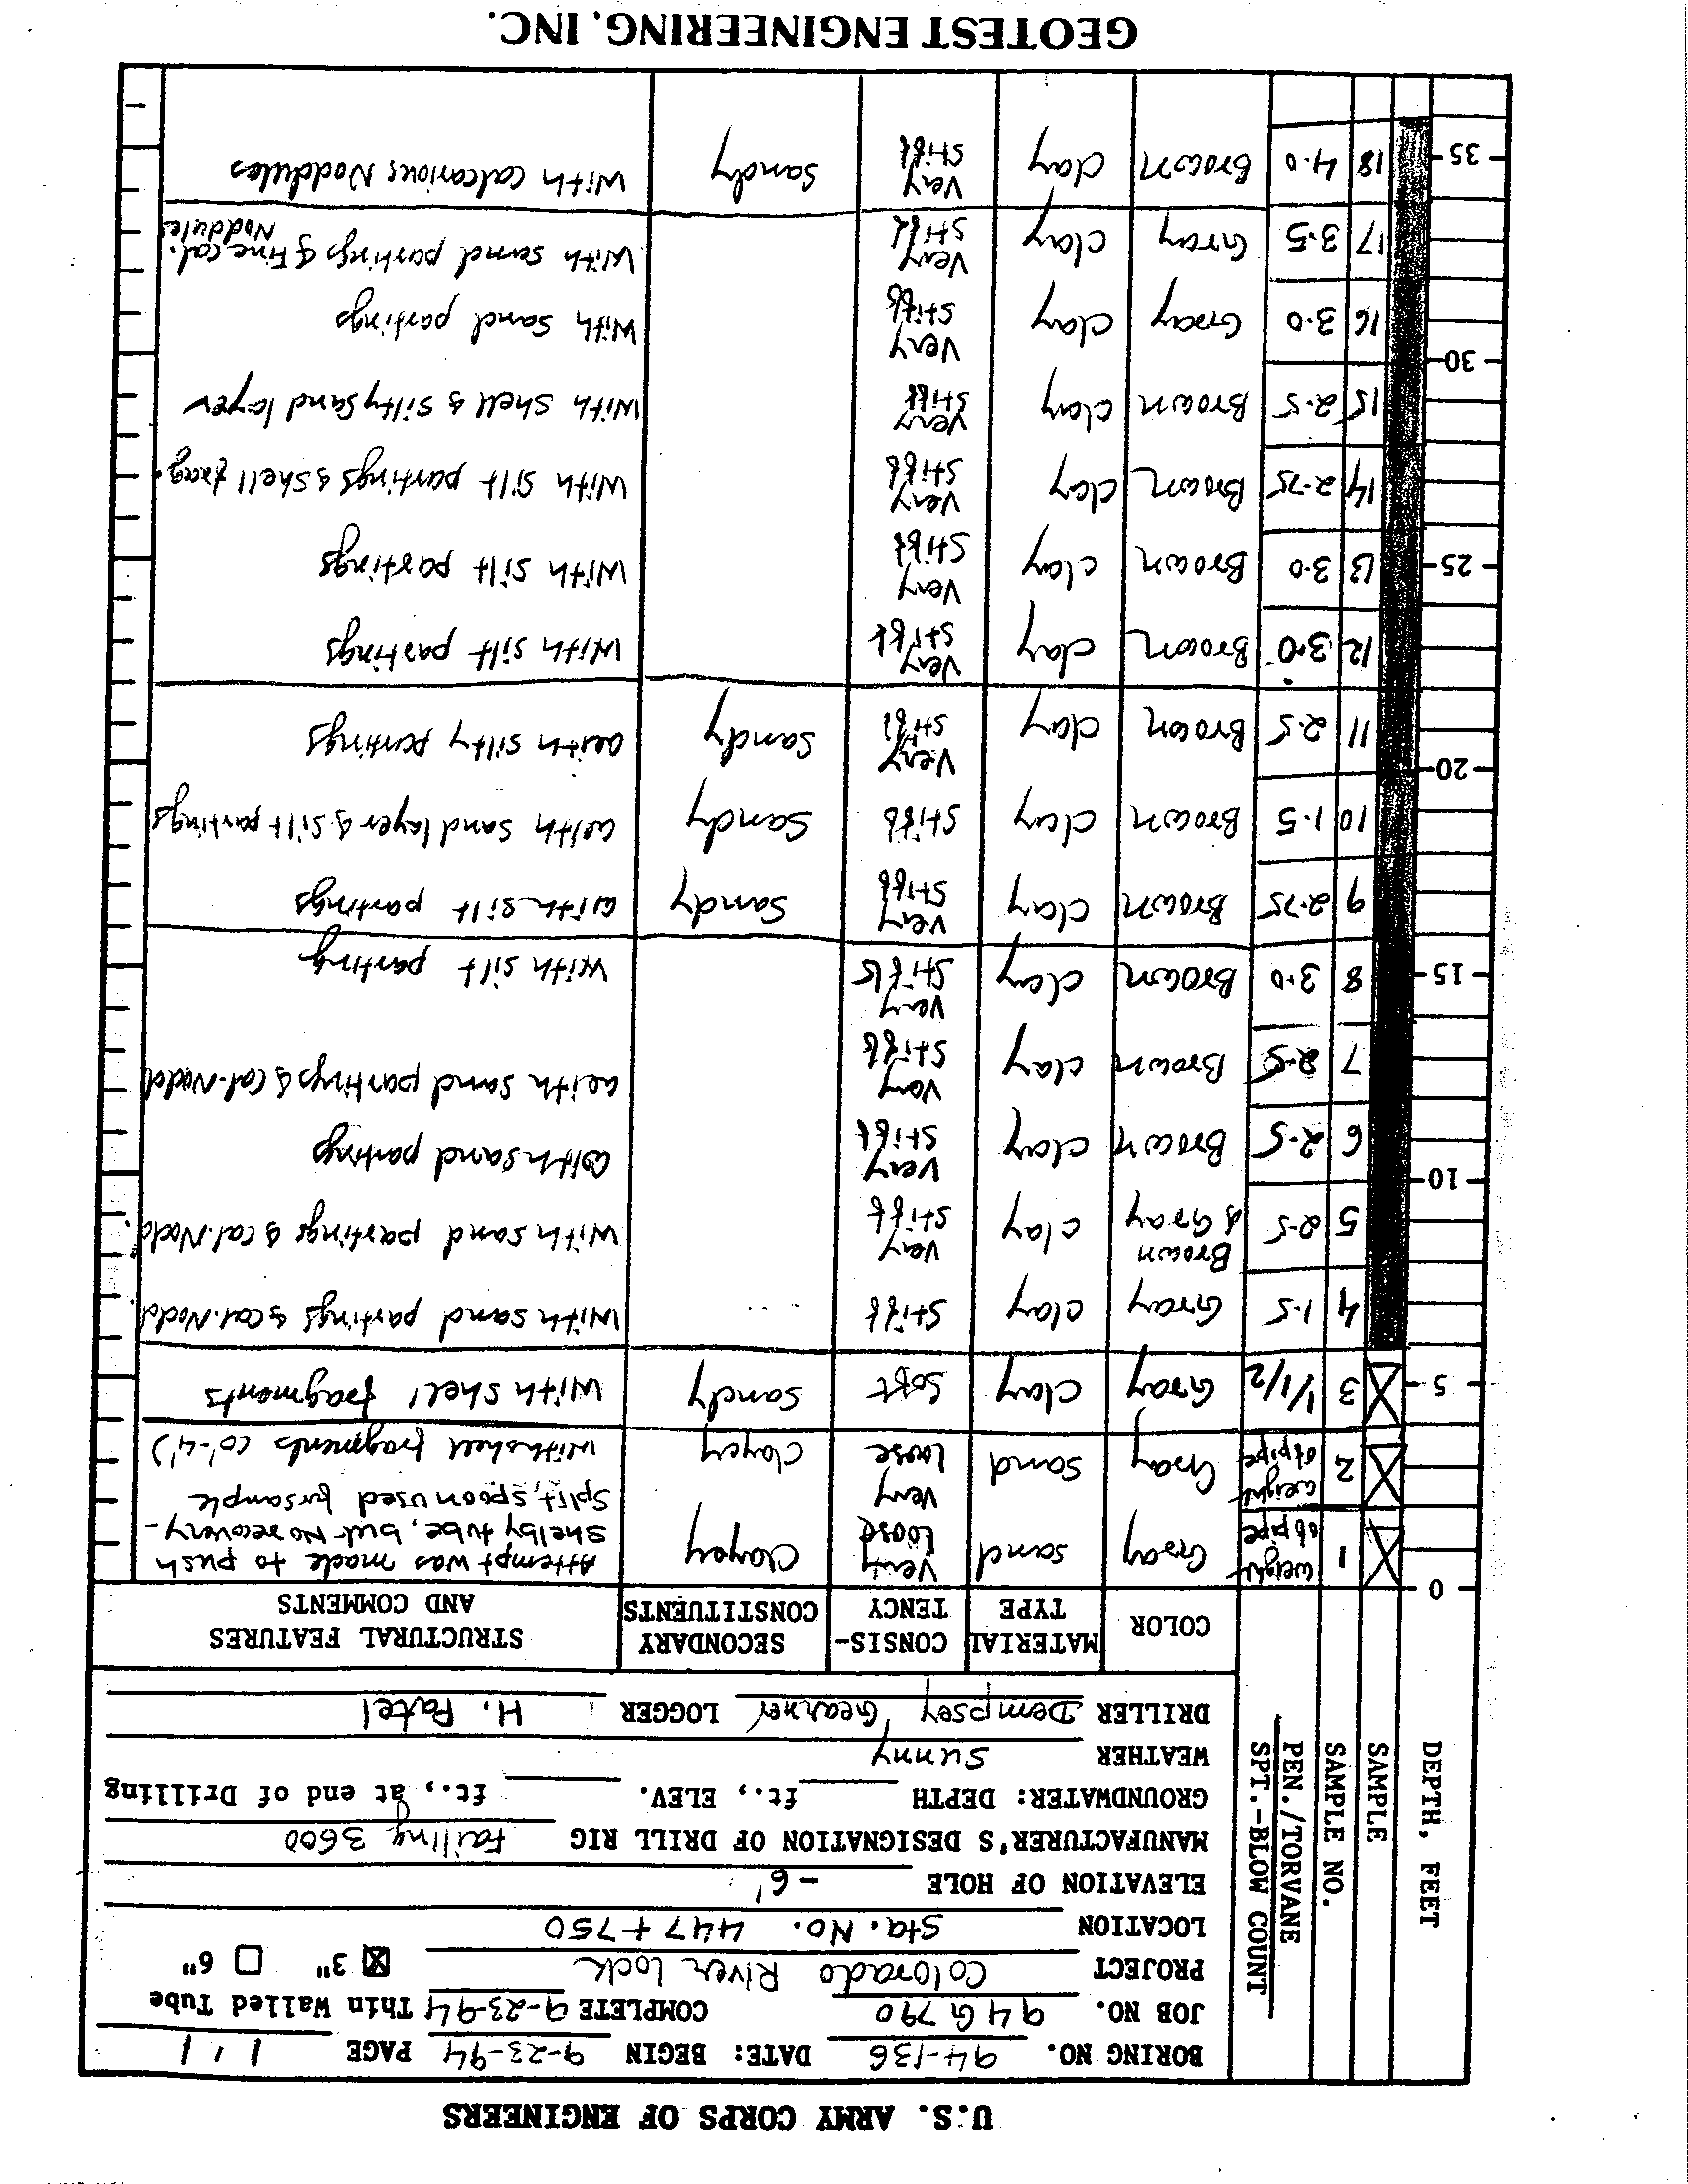 U.S. ARMY CORPS OF ENGINEERS
BORING NO. 94-136 DATE: BEGIN 9-23-94 PAGE 1 , 1
JOB NO. 94G790 COMPLETE 9-23-94 Thin Walled Tube
PROJECT Colorado River Lock ☒ 3" ☐ 6"
LOCATION Sta. No. 447+750
ELEVATION OF HOLE -6'
MANUFACTURER'S DESIGNATION OF DRILL RIG Failing 3600
GROUNDWATER: DEPTH ft., ELEV. ft., at end of Drilling
WEATHER Sunny
DRILLER Dempsey Gearner LOGGER H. Patel
DEPTH, FEET
SAMPLE
SAMPLE NO.
PEN./TORVANE
SPT.-BLOW COUNT
COLOR
MATERIAL TYPE
CONSIS-TENCY
SECONDARY CONSTITUENTS
STRUCTURAL FEATURES AND COMMENTS
0
1 weight of pipe Gray Sand Very Loose Clayey Attempt was made to push
Shelby tube, but No recovery-
Split spoon used for sample
2 weight of pipe Gray Sand Very Loose Clayey With shell fragments (0'-4')
5 3 1/1/2 Gray Clay Soft Sandy With shell fragments
4 1.5 Gray Clay Stiff With sand partings & Cal. Nodd
5 2.5 Brown & Gray Clay Very Stiff With sand partings & Cal. Nodd.
10 6 2.5 Brown Clay Very Stiff With sand partings
7 2.5 Brown Clay Very Stiff With sand partings & Cal. Nodd
15 8 3.0 Brown Clay Very Stiff With silt parting
9 2.75 Brown Clay Very Stiff Sandy With silt partings
10 1.5 Brown Clay Stiff Sandy With sand layer & silt partings
20 11 2.5 Brown Clay Very Stiff Sandy With silty partings
12 3.0 Brown Clay Very Stiff With silt partings
25 13 3.0 Brown Clay Very Stiff With silt partings
14 2.75 Brown Clay Very Stiff With silt partings & shell frag.
15 2.5 Brown Clay Very Stiff With shell & silty sand layer
30 16 3.0 Gray Clay Very Stiff With sand partings
17 3.5 Gray Clay Very Stiff With sand partings & Fine Cal. Noddules
35 18 4.0 Brown Clay Very Stiff Sandy With calcarious Noddules
GEOTEST ENGINEERING, INC.